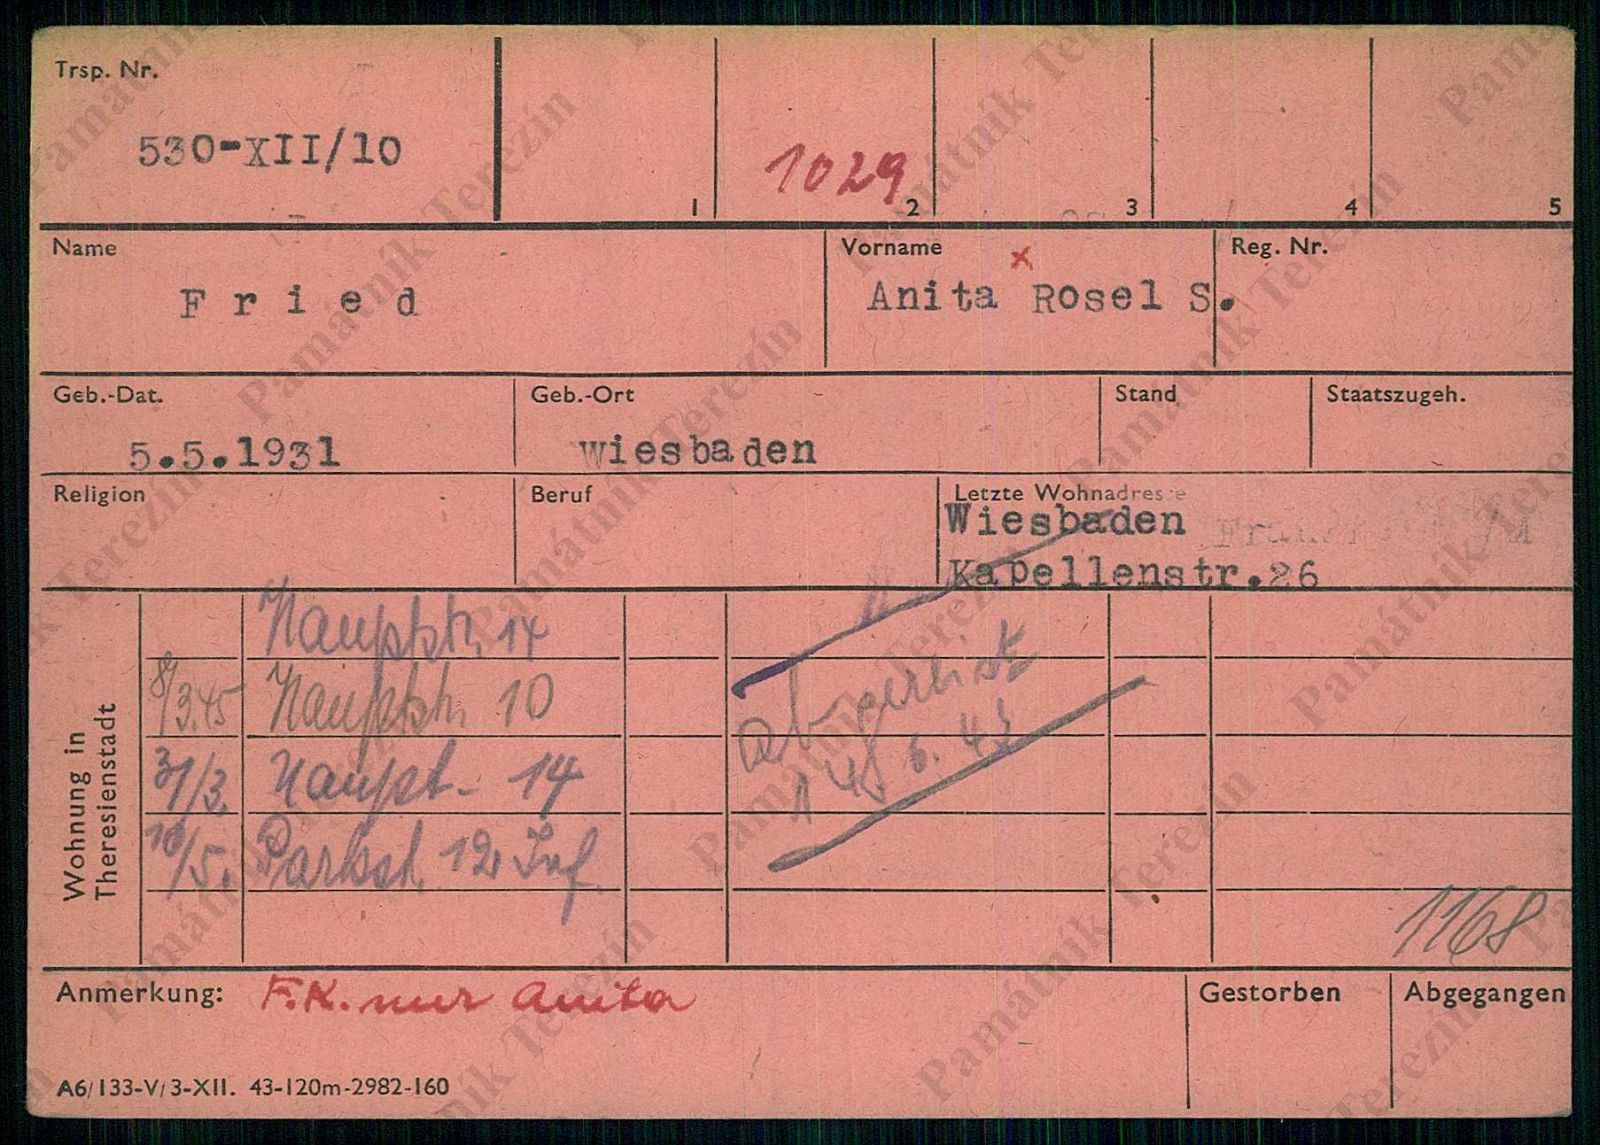 Trsp. Nr.
530-XII/10
1
1029
2
3
4
5
Name
Fried
Vorname
x
Anita Rosel S.
Reg. Nr.
Geb.-Dat.
5.5.1931
Geb.-Ort
Wiesbaden
Stand
Staatszugeh.
Religion
Beruf
Letzte Wohnadresse
Wiesbaden
Kapellenstr.26
Wohnung in
Theresienstadt
Hauptstr. 14
8/3.45 Hauptstr. 10
31/3. Haupst. 14
10/5. Parkst. 12 Inf.
6. 45
1168
Anmerkung:
F.K. nur Anita
Gestorben
Abgegangen
A6/133-V/3-XII. 43-120m-2982-160
Památník Terezín